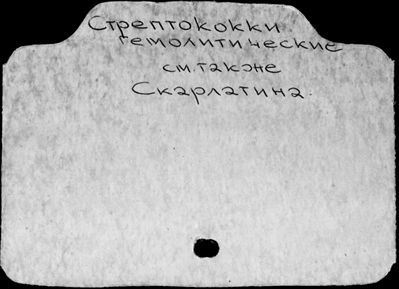 Стрептококки
гемолитические
см. также
Скарлатина.